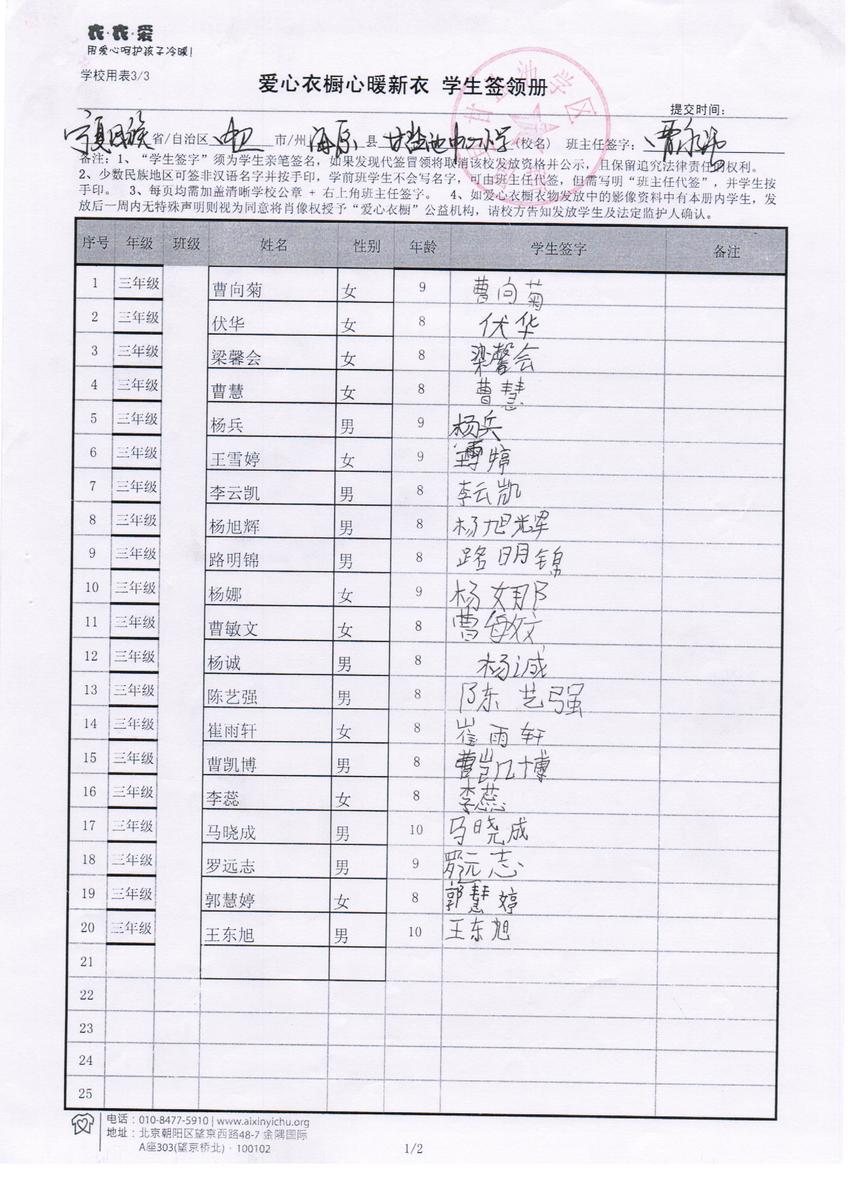 衣·衣·爱
用爱心呵护孩子冷暖!
学校用表3/3
爱心衣橱心暖新衣 学生签领册
提交时间:
宁夏回族 省/自治区 中卫 市/州 海原 县 甘盐池中心小学 (校名) 班主任签字: 曹
备注:1、“学生签字”须为学生亲笔签名,如果发现代签冒领将取消该校发放资格并公示,且保留追究法律责任的权利。
2、少数民族地区可签非汉语名字并按手印,学前班学生不会写名字,可由班主任代签,但需写明“班主任代签”,并学生按
手印。 3、每页均需加盖清晰学校公章 + 右上角班主任签字。 4、如爱心衣橱衣物发放中的影像资料中有本册内学生,发
放后一周内无特殊声明则视为同意将肖像权授予“爱心衣橱”公益机构,请校方告知发放学生及法定监护人确认。
序号 年级 班级 姓名 性别 年龄 学生签字 备注
1 三年级 曹向菊 女 9 曹向菊
2 三年级 伏华 女 8 伏华
3 三年级 梁馨会 女 8 梁馨会
4 三年级 曹慧 女 8 曹慧
5 三年级 杨兵 男 9 杨兵
6 三年级 王雪婷 女 9 王雪婷
7 三年级 李云凯 男 8 李云凯
8 三年级 杨旭辉 男 8 杨旭辉
9 三年级 路明锦 男 8 路明锦
10 三年级 杨娜 女 9 杨娜
11 三年级 曹敏文 女 8 曹敏文
12 三年级 杨诚 男 8 杨诚
13 三年级 陈艺强 男 8 陈艺强
14 三年级 崔雨轩 女 8 崔雨轩
15 三年级 曹凯博 男 8 曹凯博
16 三年级 李蕊 女 8 李蕊
17 三年级 马晓成 男 10 马晓成
18 三年级 罗远志 男 9 罗远志
19 三年级 郭慧婷 女 8 郭慧婷
20 三年级 王东旭 男 10 王东旭
21
22
23
24
25
电话:010-8477-5910 | www.aixinyichu.org
地址:北京朝阳区望京西路48-7 金隅国际
A座303(望京桥北)·100102
1/2